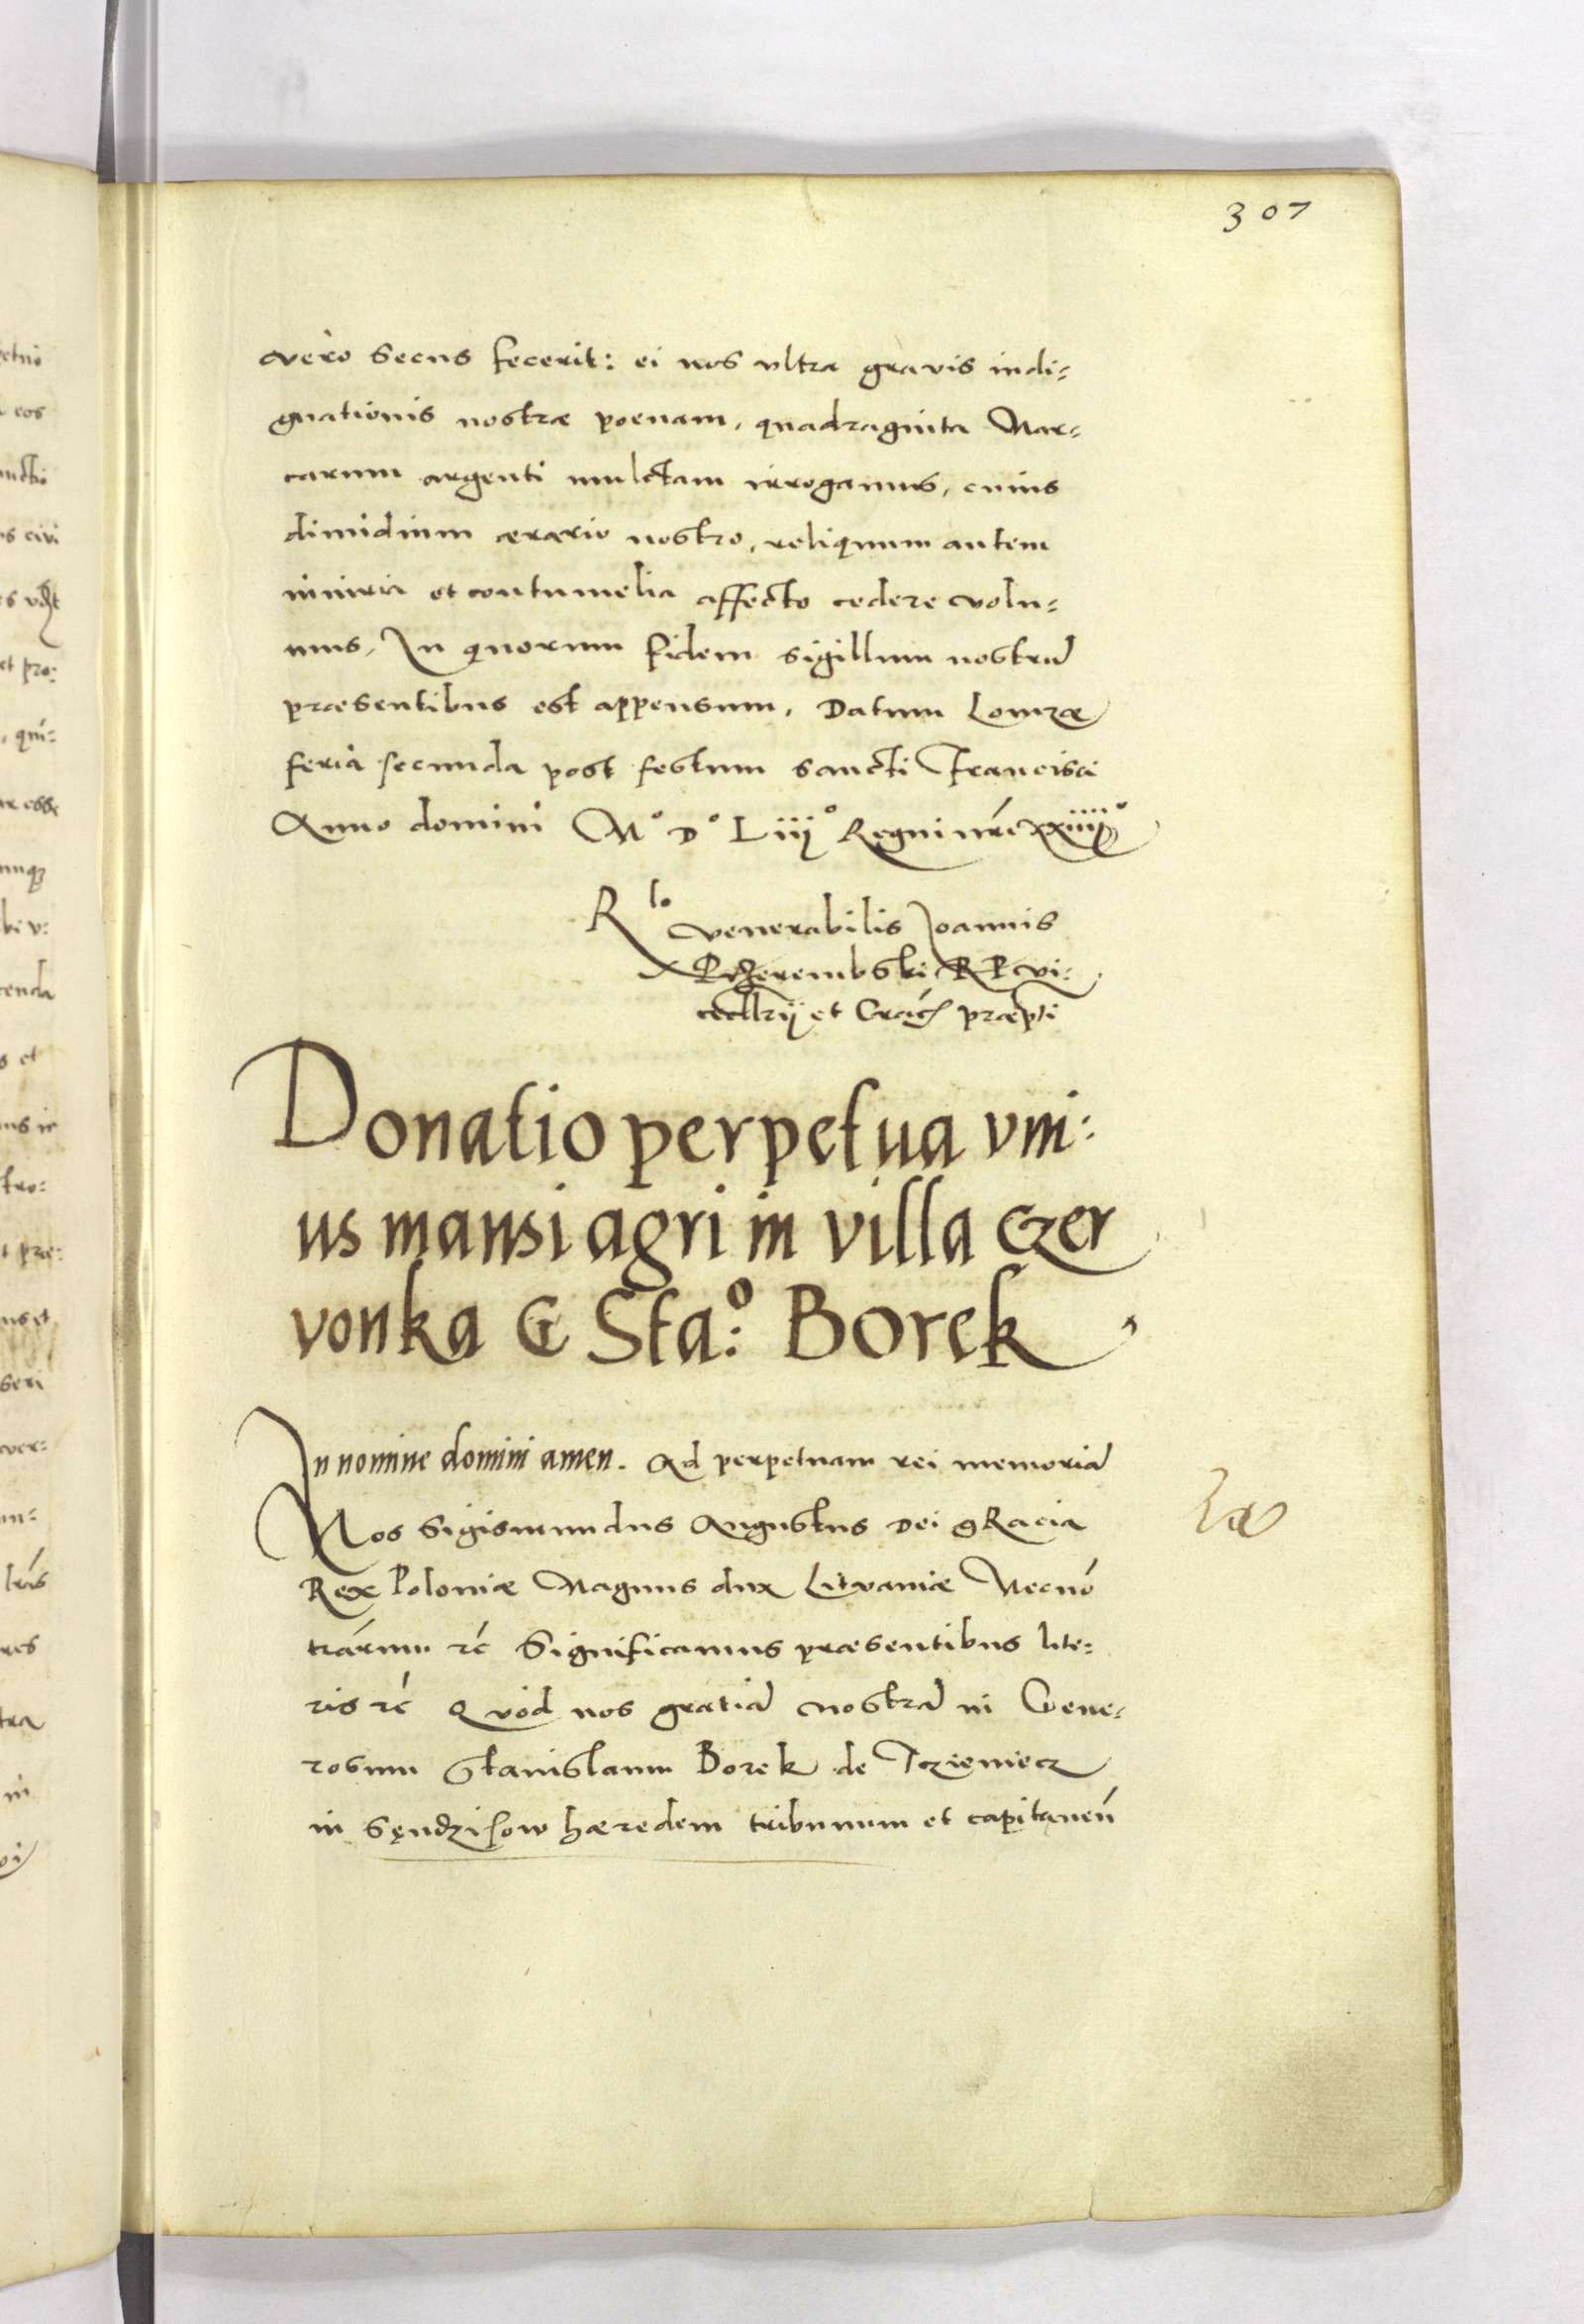 307
vero secus fecerit: ei nos ultra gravis indi=
gnationis nostræ poenam, quadraginta Mar=
carum argenti mulctam irrogamus, cuius
dimidium ærario nostro, reliquum autem
iniuria et contumelia affecto cedere volu=
mus. In quorum fidem sigillum nostrũ
præsentibus est appensum. Datum Lomzæ
feria secunda post festum sancti Francisci
Anno domini M° D° Liij° Regni nr̃i xxiiij°
R lo venerabilis Joannis
Przerembski R P vi=
cecllrij et Crac̃ præpti
Donatio perpetua vni:
us mansi agri in villa czer
vonka G Sta:° Borek
In nomine domini amen. Ad perpetuam rei memoriã
Nos Sigismundus Augustus Dei gRacia
Rex Poloniæ Magnus dux Lituaniæ Necnõ
trãrum rc̃ Significamus præsentibus lite=
ris rc̃ Quòd nos gratiã nostrã in Gene=
rosum Stanislaum Borek de Trzieniecz
in Sęndzisow hæredem tribunum et capitaneũ